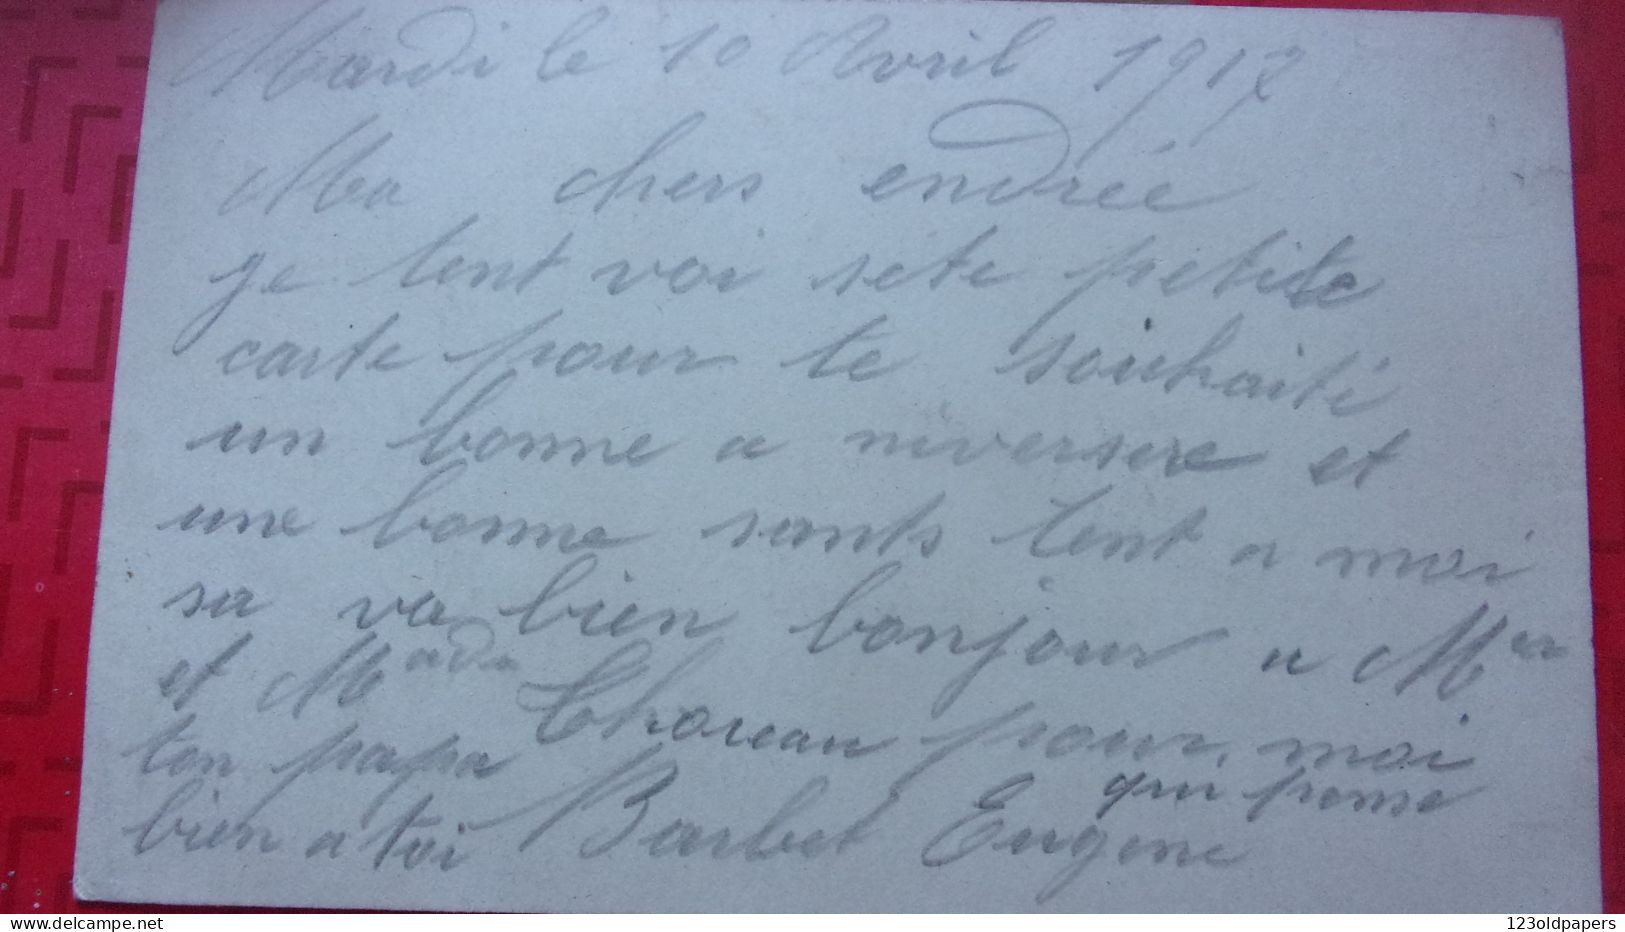 Mardi le 10 Avril 1917
Ma chers endrée
je tent voi sète petite
carte pour te souhaité
un bonne a niversere et
une bonne sants tent a moi
sa va bien bonjour a Mer
et Made Thoreau pour moi
ton papa qui panse
bien a toi Barbet Eugene
123oldpapers